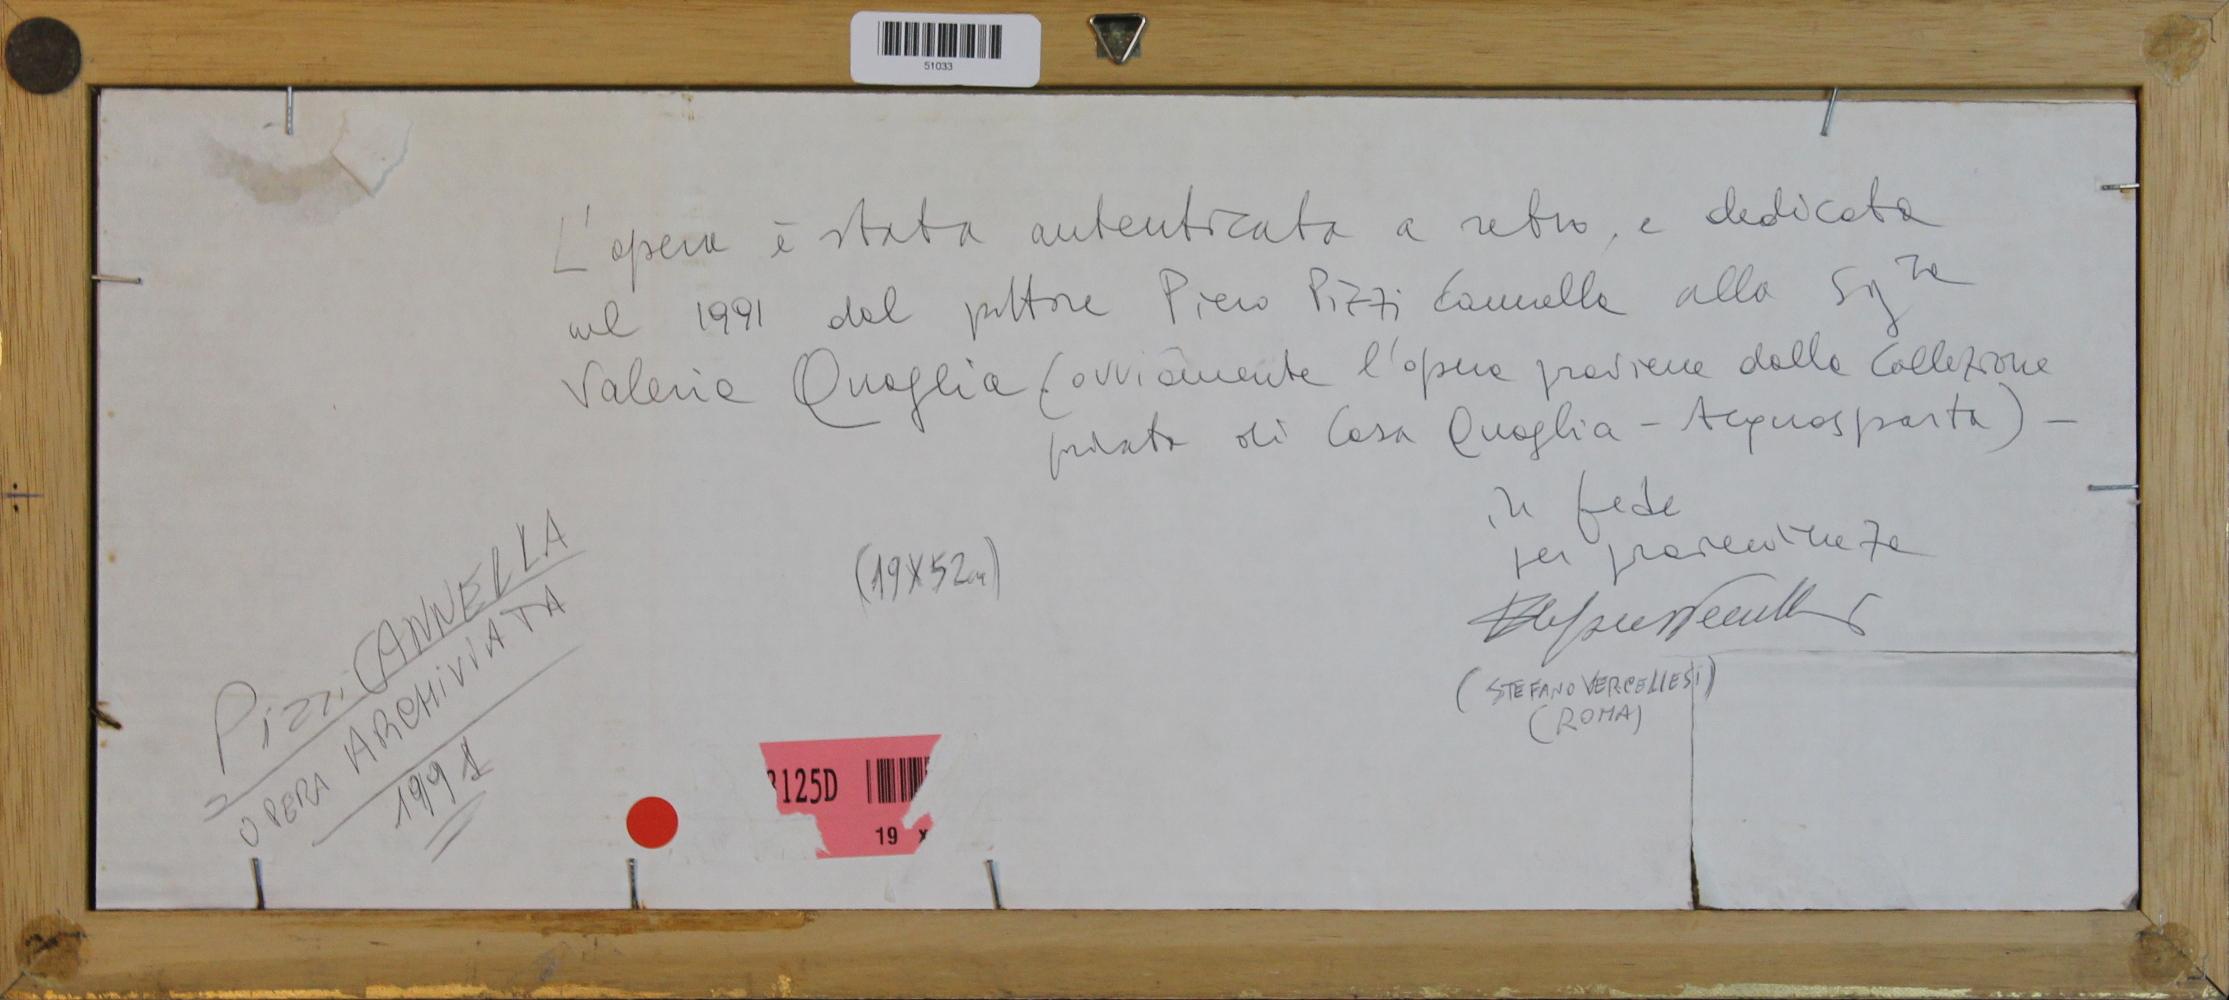 51033
L'opera è stata autenticata a retro, e dedicata
nel 1991 dal pittore Piero Pizzi Cannella alla Sig.ra
Valeria Quaglia (ovviamente l'opera proviene dalla Collezione
privata di Casa Quaglia - Acquasparta) -
in fede
per provenienza
(STEFANO VERCELLESI)
(ROMA)
(19X52cm)
Pizzi CANNELLA
OPERA ARCHIVIATA
1991
125D
19 x